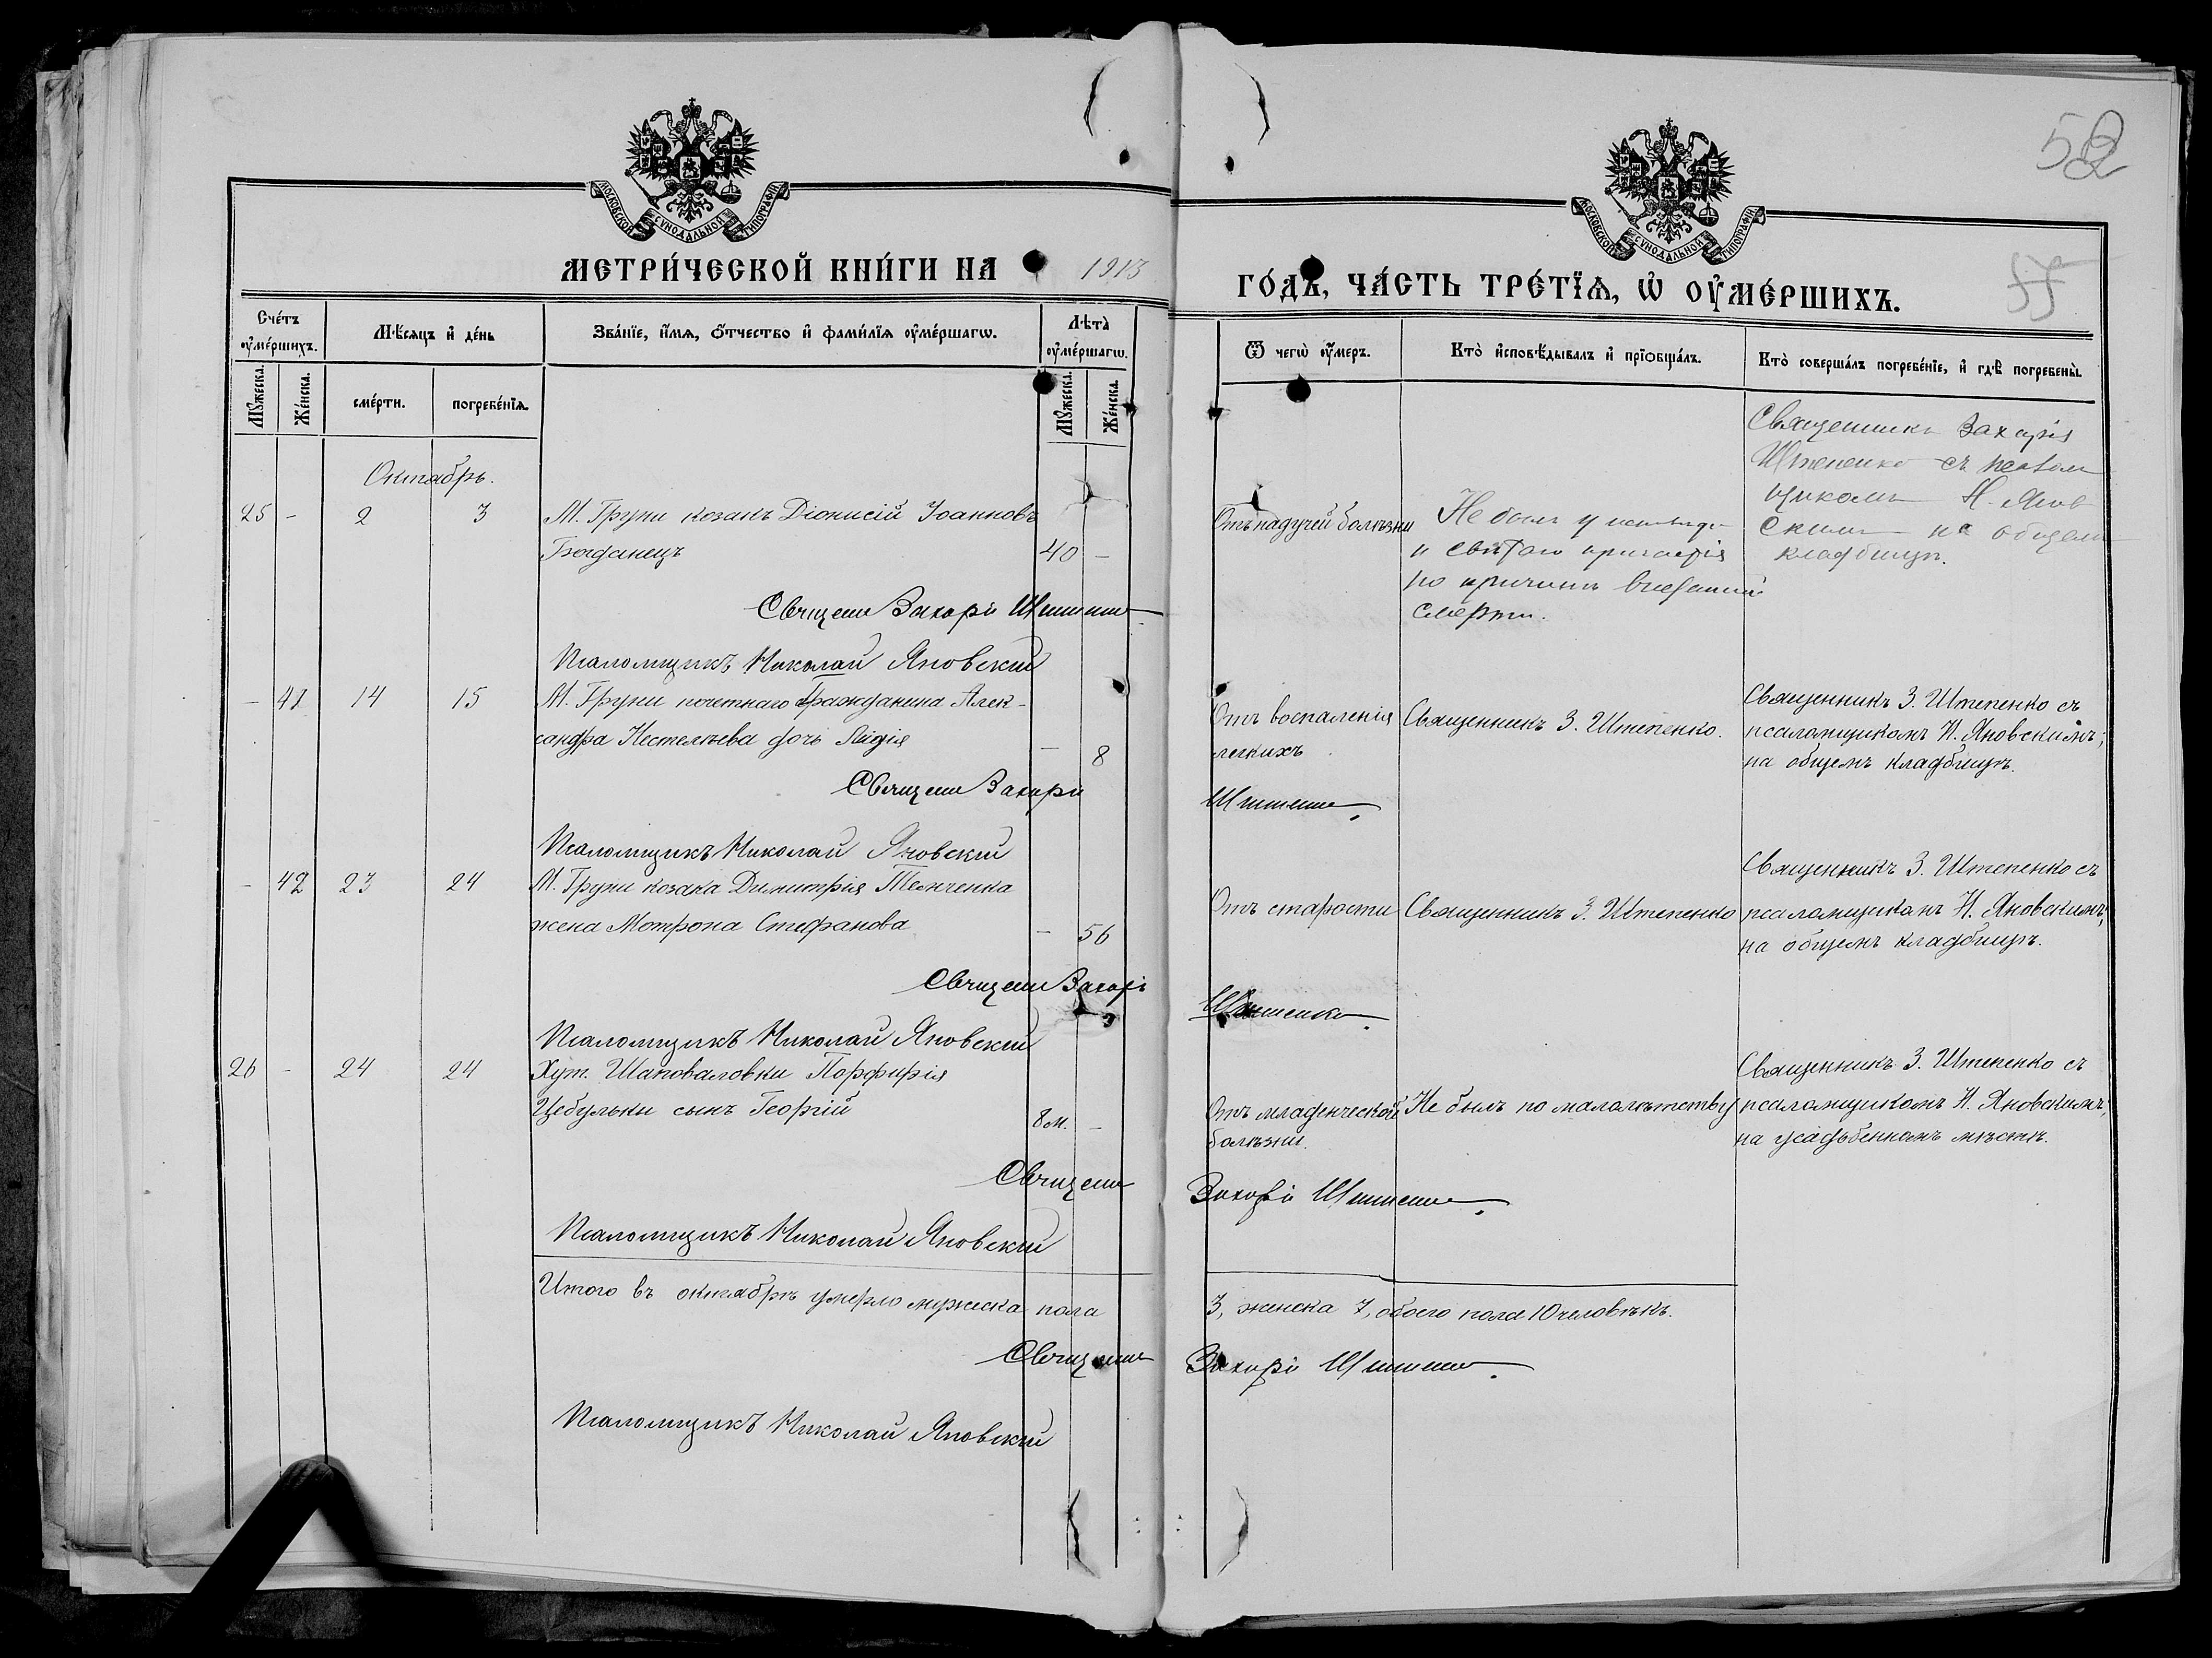 52
МОСКОВСКОЙ СѴНОДАЛЬНОЙ ТИПОГРАФІИ
МОСКОВСКОЙ СѴНОДАЛЬНОЙ ТИПОГРАФІИ
МЕТРИ́ЧЕСКОЙ КНИ́ГИ НА 1913
ГО́ДЪ, ЧА́СТЬ ТРЕ́ТЇѦ, Ѡ҆ ОУ҆МЕ́РШИХЪ.
Сче́тъ оу҆ме́ршихъ.
Мѣ́сяцъ и҆ де́нь
Зва́нїе, и҆́мѧ, ѻ҆́тчество и҆ фами́лїѧ оу҆ме́ршагѡ.
Лѣ́та̀ оу҆ме́ршагѡ.
Ѿ чегѡ̀ оу҆́меръ.
Кто̀ и҆сповѣ́дывалъ и҆ прїѡбща́лъ.
Кто̀ соверша́лъ погребе́нїе, и҆ гдѣ̀ погребены̀.
Мꙋ́жеска.
Же́нска.
сме́рти.
погребе́нїѧ.
Мꙋ́жеска.
Же́нска.
Октябрь.
25 - 2 3 М. Груни козакъ Діонисій Іоанновъ
Богданецъ 40 -
Отъ падучей болѣзни
Не былъ у исповѣди
и святаго причастія
по причинѣ внезапной
смерти.
Священникъ Захарія
Штепенко съ псалом
щикомъ Н. Янов
скимъ на общемъ
кладбищѣ.
Священ Захарій Штепенко
Псаломщикъ Николай Яновскій
- 41 14 15 М. Груни почетнаго Гражданина Алек-
сандра Нестелѣева дочь Лидія - 8
Отъ воспаленія
легкихъ
Священникъ З. Штепенко.
Священникъ З. Штепенко съ
псаломщикомъ Н. Яновскимъ,
на общемъ кладбищѣ.
Священ Захарій Штепенко
Псаломщикъ Николай Яновскій
- 42 23 24 М. Груни козака Димитрія Темченка
жена Мотрона Стефанова - 56
Отъ старости
Священникъ З. Штепенко
Священникъ З. Штепенко съ
псаломщикомъ Н. Яновскимъ,
на общемъ кладбищѣ.
Священ Захарій Штепенко
Псаломщикъ Николай Яновскій
26 - 24 24 Хут. Шаповаловки Порфирія
Цебульки сынъ Георгій 8 м. -
Отъ младенческой
болѣзни.
Не былъ по малолѣтству
Священникъ З. Штепенко съ
псаломщикомъ Н. Яновскимъ,
на усадьбенномъ мѣстѣ.
Священ Захарій Штепенко
Псаломщикъ Николай Яновскій
Итого въ октябрѣ умерло мужеска пола 3, женска 7, обоего пола 10 человѣкъ.
Священ Захарій Штепенко
Псаломщикъ Николай Яновскій